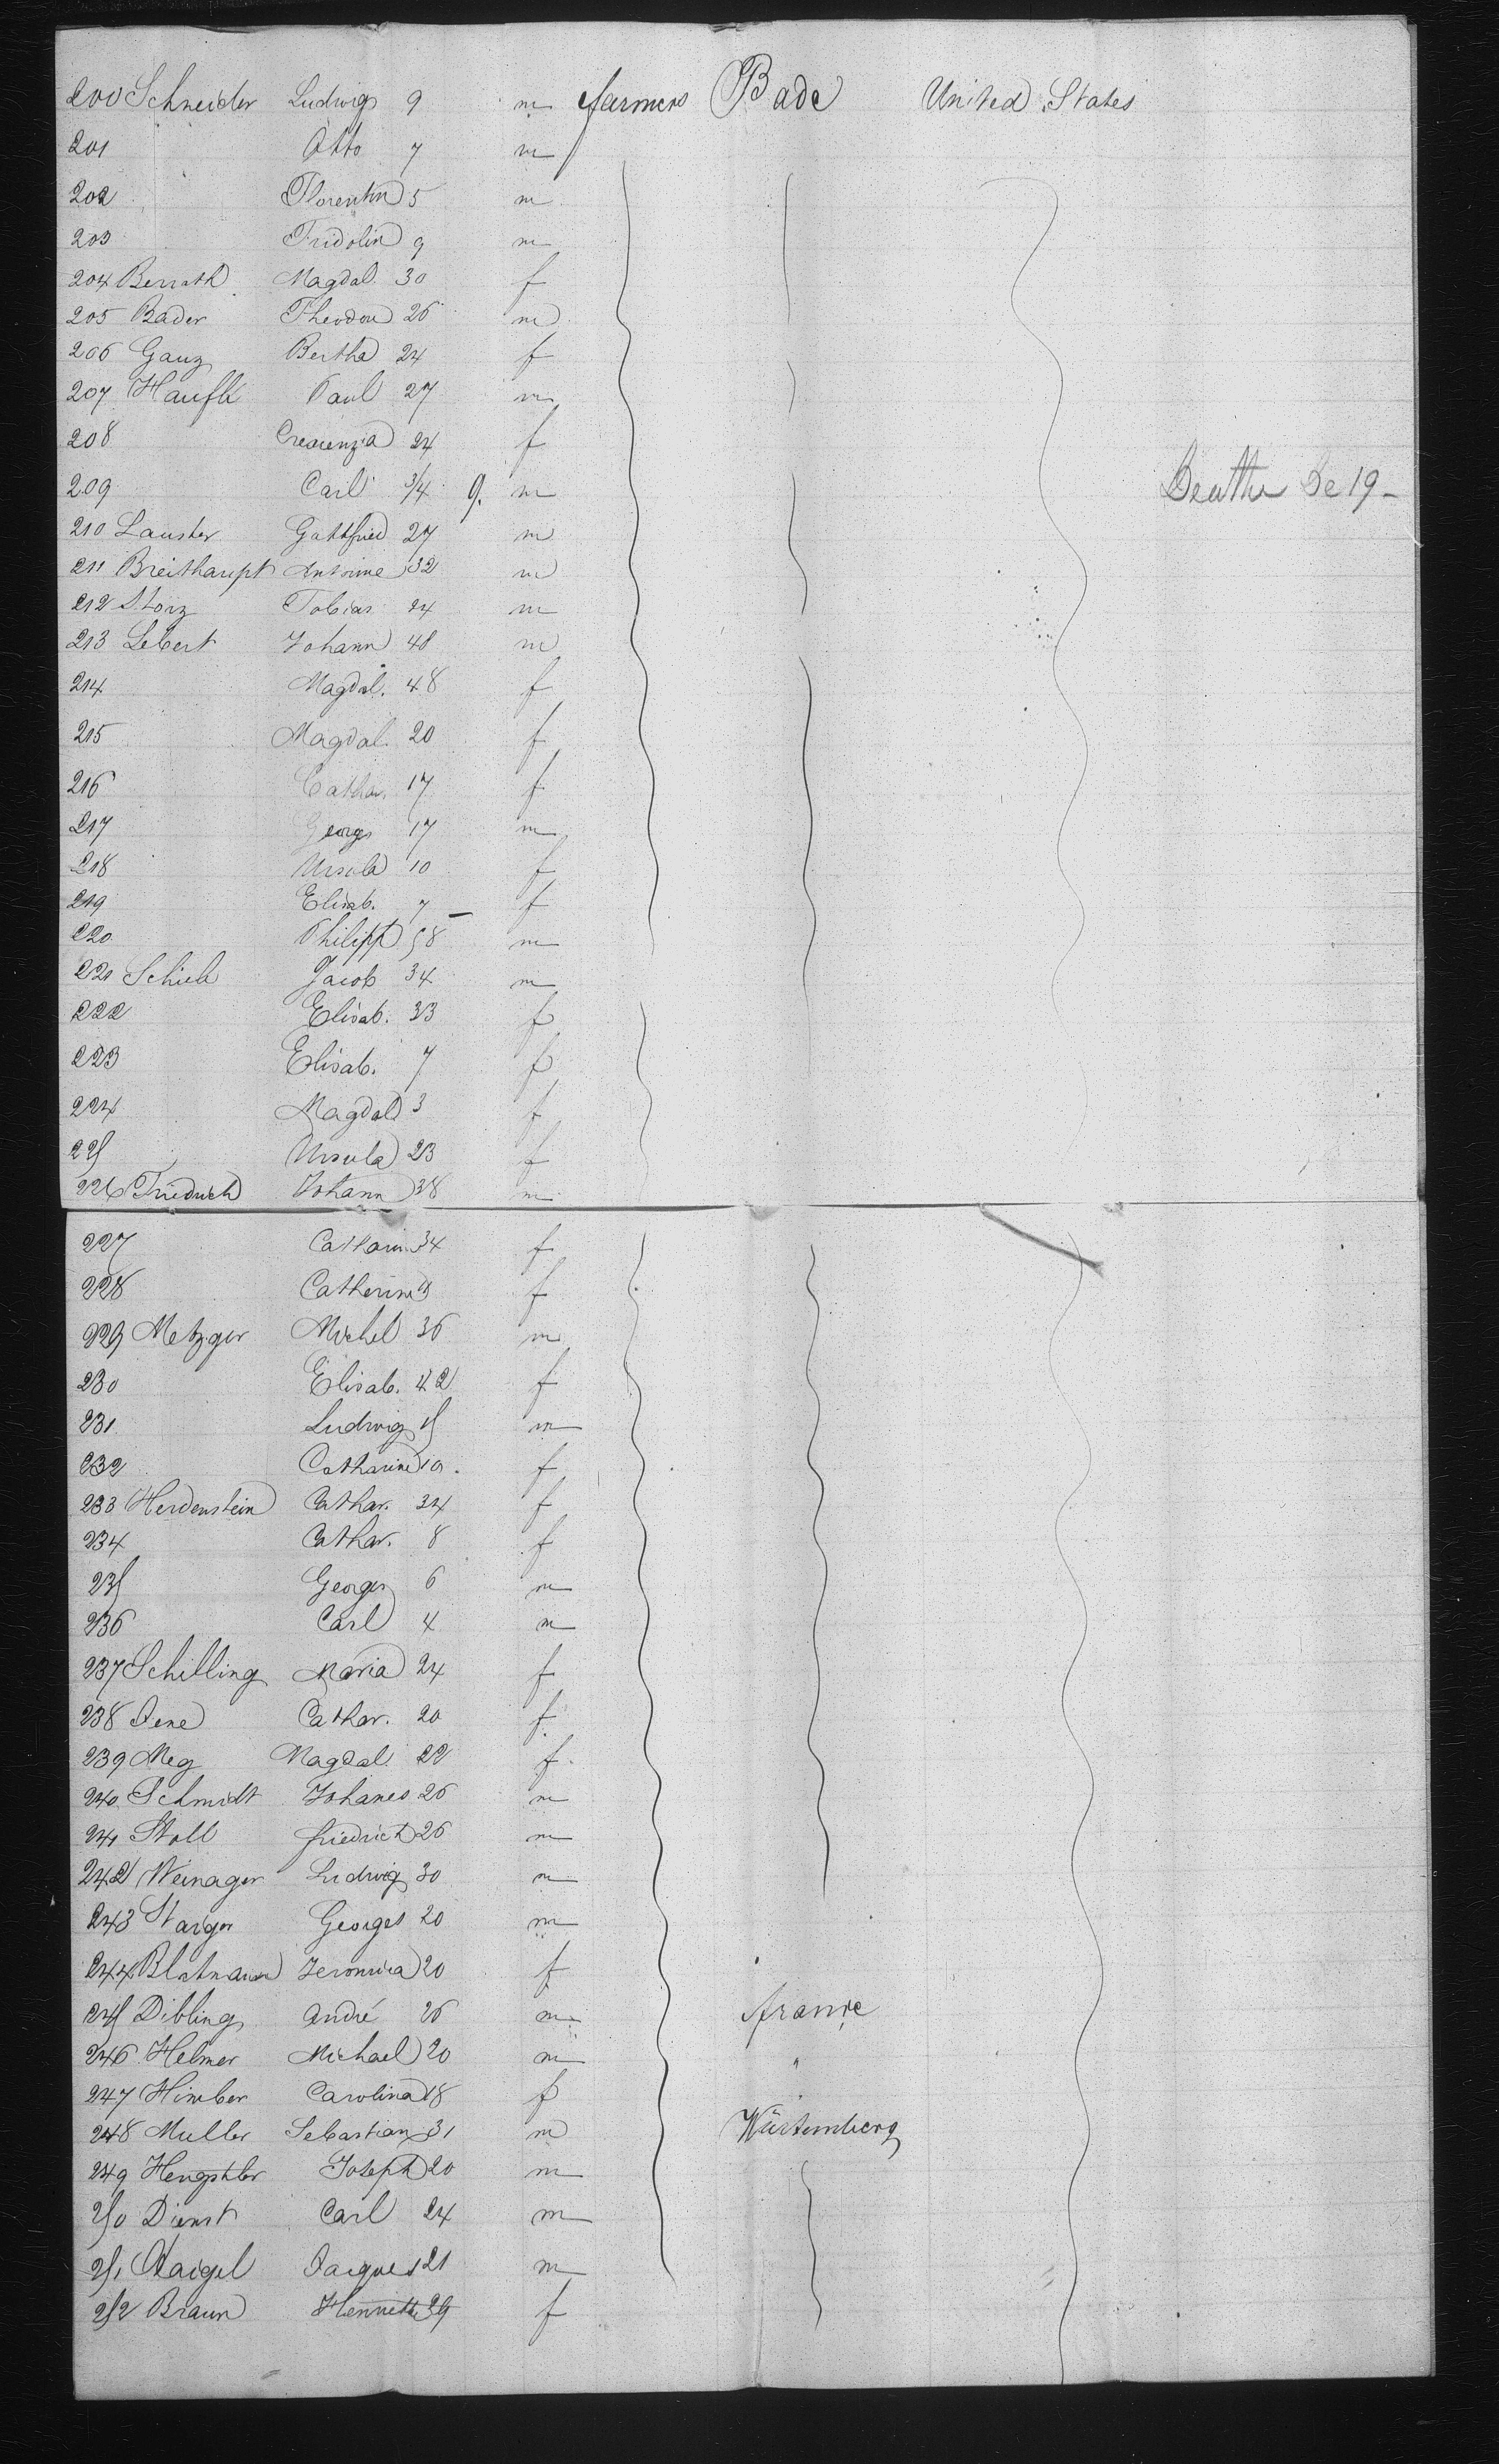 200 Schneider Ludwig 9 m farmers Bade United States
201 Otto 7 m
202 Florentin 5 m
203 Fridolin 9 m
204 Berrath Magdal. 30 f
205 Bader Theodore 26 m
206 Ganz Bertha 24 f
207 Haufle Paul 27 m
208 Crescenzia 24 f
209 Carl 3/4 9. m Deaths De 19 -
210 Lauster Gottfried 27 m
211 Breithaupt Antoine 32 m
212 Storz Tobias 24 m
213 Lebert Johann 48 m
214 Magdal. 48 f
215 Magdal. 20 f
216 Cathar. 17 f
217 Georg 17 m
218 Ursula 10 f
219 Elisab. 7 f
220 Philipp 58 m
221 Jacob 34 m
222 Elisab. 33 f
223 Elisab. 7 f
224 Magdal 3 f
225 Ursula 23 f
226 Friedrich Johann 38 m
227 Catharin 34 f
228 Catherine f
229 Metzger Michel 36 m
230 Elisab. 42 f
231 Ludwig 15 m
232 Catharine 10. f
233 Herdenstein Cathar. 34 f
234 Cathar. 8 f
235 Georges 6 m
236 Carl 4 m
237 Schilling Maria 24 f
238 Cathar. 20 f
239 Meg Magdal. 22 f
240 Schmidt Johanes 26 m
241 Stoll friedrich 26 m
242 Weinager Ludwig 30 m
243 Staiger Georges 20 m
244 Blatmann 20 f
245 Dibling André 26 m france
246 Helmer Michael 20 m "
247 Himber Carolina 18 f
248 Muller Sebastian 31 m Würtemberg
249 Hengstler Joseph 20 m
250 Dienst Carl 24 m
251 Jacques 21 m
252 Braun Henriette 29 f